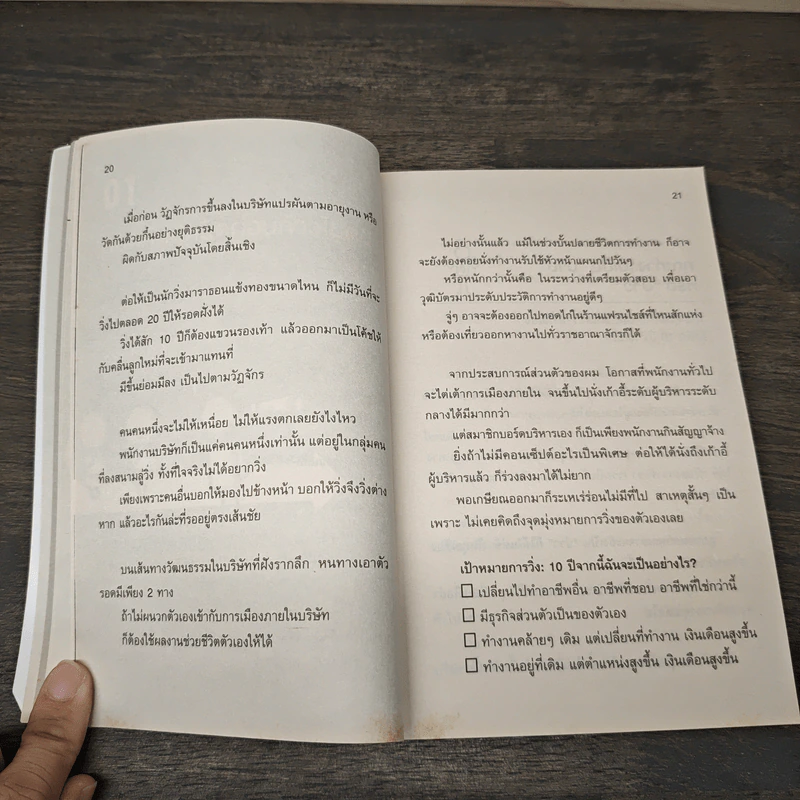 20
เมื่อก่อน วัฏจักรการขึ้นลงในบริษัทแปรผันตามอายุงาน หรือ
วัดกันด้วยกึ๋นอย่างยุติธรรม
ผิดกับสภาพปัจจุบันโดยสิ้นเชิง
ต่อให้เป็นนักวิ่งมาราธอนแข้งทองขนาดไหน ก็ไม่มีวันที่จะ
วิ่งไปตลอด 20 ปีให้รอดฝั่งได้
วิ่งได้สัก 10 ปีก็ต้องแขวนรองเท้า แล้วออกมาเป็นโค้ชให้
กับคลื่นลูกใหม่ที่จะเข้ามาแทนที่
มีขึ้นย่อมมีลง เป็นไปตามวัฏจักร
คนคนหนึ่งจะไม่ให้เหนื่อย ไม่ให้แรงตกเลยยังไงไหว
พนักงานบริษัทก็เป็นแค่คนคนหนึ่งเท่านั้น แต่อยู่ในกลุ่มคน
ที่ลงสนามลู่วิ่ง ทั้งที่ใจจริงไม่ได้อยากวิ่ง
เพียงเพราะคนอื่นบอกให้มองไปข้างหน้า บอกให้วิ่งจึงวิ่งต่าง
หาก แล้วอะไรกันล่ะที่รออยู่ตรงเส้นชัย
บนเส้นทางวัฒนธรรมในบริษัทที่ฝังรากลึก หนทางเอาตัว
รอดมีเพียง 2 ทาง
ถ้าไม่ผนวกตัวเองเข้ากับการเมืองภายในบริษัท
ก็ต้องใช้ผลงานช่วยชีวิตตัวเองให้ได้
21
ไม่อย่างนั้นแล้ว แม้ในช่วงบั้นปลายชีวิตการทำงาน ก็อาจ
จะยังต้องคอยนั่งทำงานรับใช้หัวหน้าแผนกไปวันๆ
หรือหนักกว่านั้นคือ ในระหว่างที่เตรียมตัวสอบ เพื่อเอา
วุฒิบัตรมาประดับประวัติการทำงานอยู่ดีๆ
จู่ๆ อาจจะต้องออกไปทอดไก่ในร้านแฟรนไชส์ที่ไหนสักแห่ง
หรือต้องเที่ยวออกหางานไปทั่วราชอาณาจักรก็ได้
จากประสบการณ์ส่วนตัวของผม โอกาสที่พนักงานทั่วไป
จะไต่เต้าการเมืองภายใน จนขึ้นไปนั่งเก้าอี้ระดับผู้บริหารระดับ
กลางได้มีมากกว่า
แต่สมาชิกบอร์ดบริหารเอง ก็เป็นเพียงพนักงานกินสัญญาจ้าง
ยิ่งถ้าไม่มีคอนเซ็ปต์อะไรเป็นพิเศษ ต่อให้ได้นั่งถึงเก้าอี้
ผู้บริหารแล้ว ก็ร่วงลงมาได้ไม่ยาก
พอเกษียณออกมาก็ระเหเร่ร่อนไม่มีที่ไป สาเหตุสั้นๆ เป็น
เพราะ ไม่เคยคิดถึงจุดมุ่งหมายการวิ่งของตัวเองเลย
เป้าหมายการวิ่ง: 10 ปีจากนี้ฉันจะเป็นอย่างไร?
☐ เปลี่ยนไปทำอาชีพอื่น อาชีพที่ชอบ อาชีพที่ใช่กว่านี้
☐ มีธุรกิจส่วนตัวเป็นของตัวเอง
☐ ทำงานคล้ายๆ เดิม แต่เปลี่ยนที่ทำงาน เงินเดือนสูงขึ้น
☐ ทำงานอยู่ที่เดิม แต่ตำแหน่งสูงขึ้น เงินเดือนสูงขึ้น